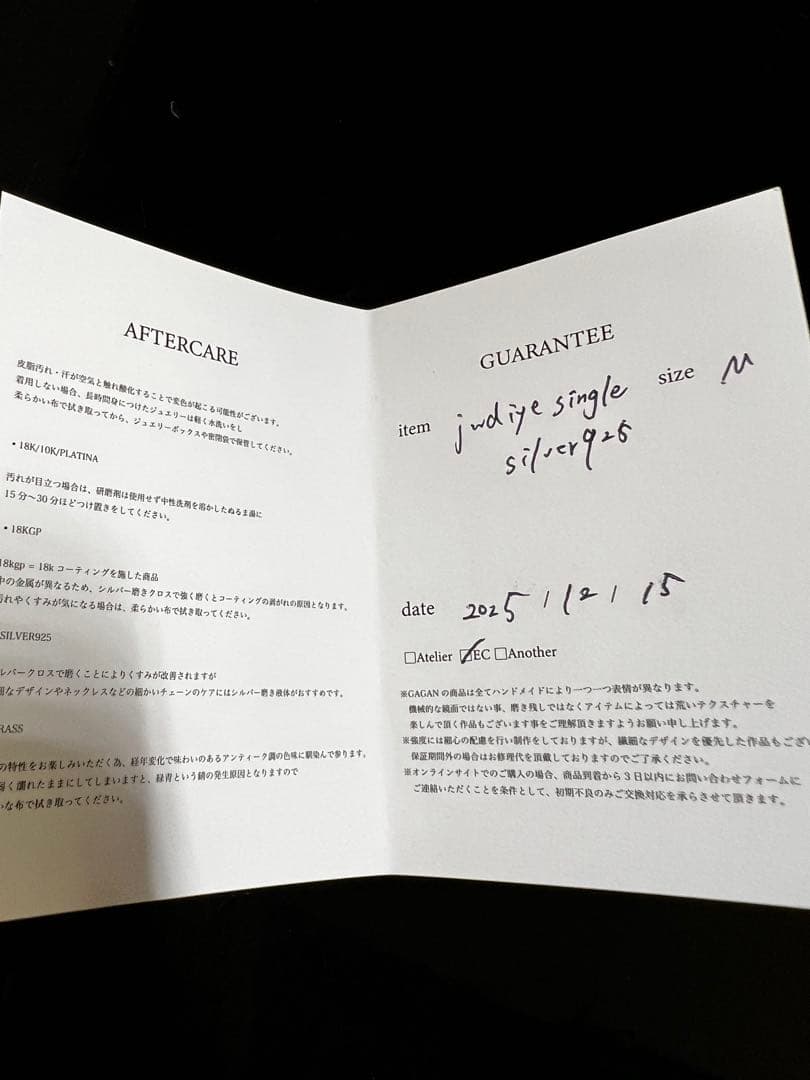 AFTERCARE
皮脂汚れ・汗が空気と触れ酸化することで変色が起こる可能性がございます。
着用しない場合、長時間身につけたジュエリーは軽く水洗いをし
柔らかい布で拭き取ってから、ジュエリーボックスや密閉袋で保管してください。
・18K/10K/PLATINA
汚れが目立つ場合は、研磨剤は使用せず中性洗剤を溶かしたぬるま湯に
15分〜30分ほどつけ置きをしてください。
・18KGP
18kgp = 18kコーティングを施した商品
中の金属が異なるため、シルバー磨きクロスで強く磨くとコーティングの剥がれの原因となります。
汚れやくすみが気になる場合は、柔らかい布で拭き取ってください。
SILVER925
ルバークロスで磨くことによりくすみが改善されますが
細なデザインやネックレスなどの細かいチェーンのケアにはシルバー磨き液体がおすすめです。
RASS
の特性をお楽しみいただく為、経年変化で味わいのあるアンティーク調の色味に馴染んで参ります。
く濡れたままにしてしまいますと、緑青という錆の発生原因となりますので
かな布で拭き取ってください。
GUARANTEE
item jwdiye single size M
silver925
date 2025/12/15
□Atelier ☑EC □Another
※GAGANの商品は全てハンドメイドにより一つ一つ表情が異なります。
機械的な鏡面ではない事、磨き残しではなくアイテムによっては荒いテクスチャーを
楽しんで頂く作品もございます事をご理解頂きますようお願い申し上げます。
※強度には細心の配慮を行い制作をしておりますが、繊細なデザインを優先した作品もござい
保証期間外の場合はお修理代を頂戴しておりますのでご了承ください。
※オンラインサイトでのご購入の場合、商品到着から3日以内にお問い合わせフォームに
ご連絡いただくことを条件として、初期不良のみご交換対応を承らさせて頂きます。